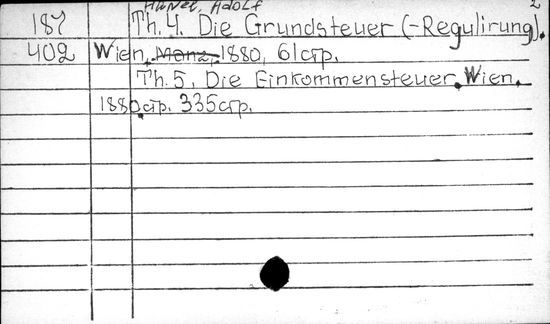 Adolf 2
187 Th. 4. Die Grundsteuer (-Regulirung).
402 Wien, Manz, 1880, 61 стр.
Th. 5. Die Einkommensteuer, Wien,
1880 стр. 335 стр.